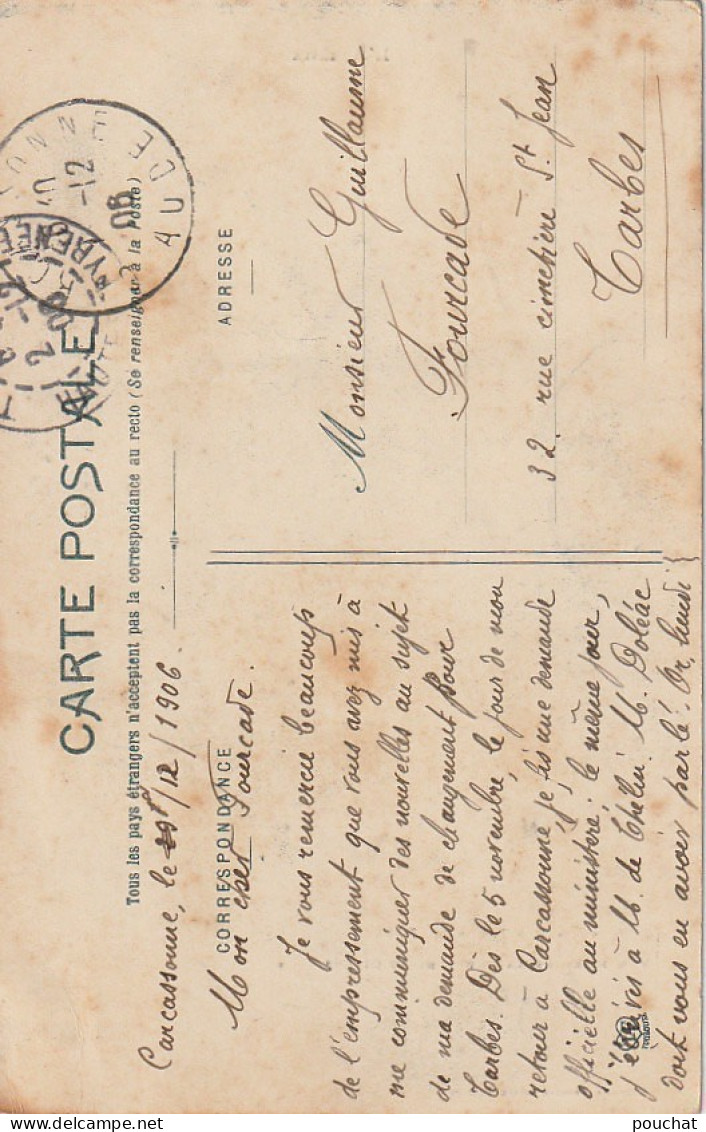 CARTE POSTALE
Tous les pays étrangers n'acceptent pas la correspondance au recto (Se renseigner à la Poste)
CORRESPONDANCE
Carcassonne, le /12/1906.
Mon cher Fourcade.
Je vous remercie beaucoup
de l'empressement que vous avez mis à
me communiquer des nouvelles au sujet
de ma demande de changement pour
Tarbes. Dès le 5 novembre, le jour de mon
retour à Carcassonne, je fis une demande
officielle au ministère; le même jour,
j'écrivis à M. de Thélin. M. Doléac
doit vous en avoir parlé. Or, lundi
ADRESSE
Monsieur Guillaume
Fourcade
32. rue cimetière St Jean
Tarbes
AUDE
-12
06
PYRENEES
pouchat